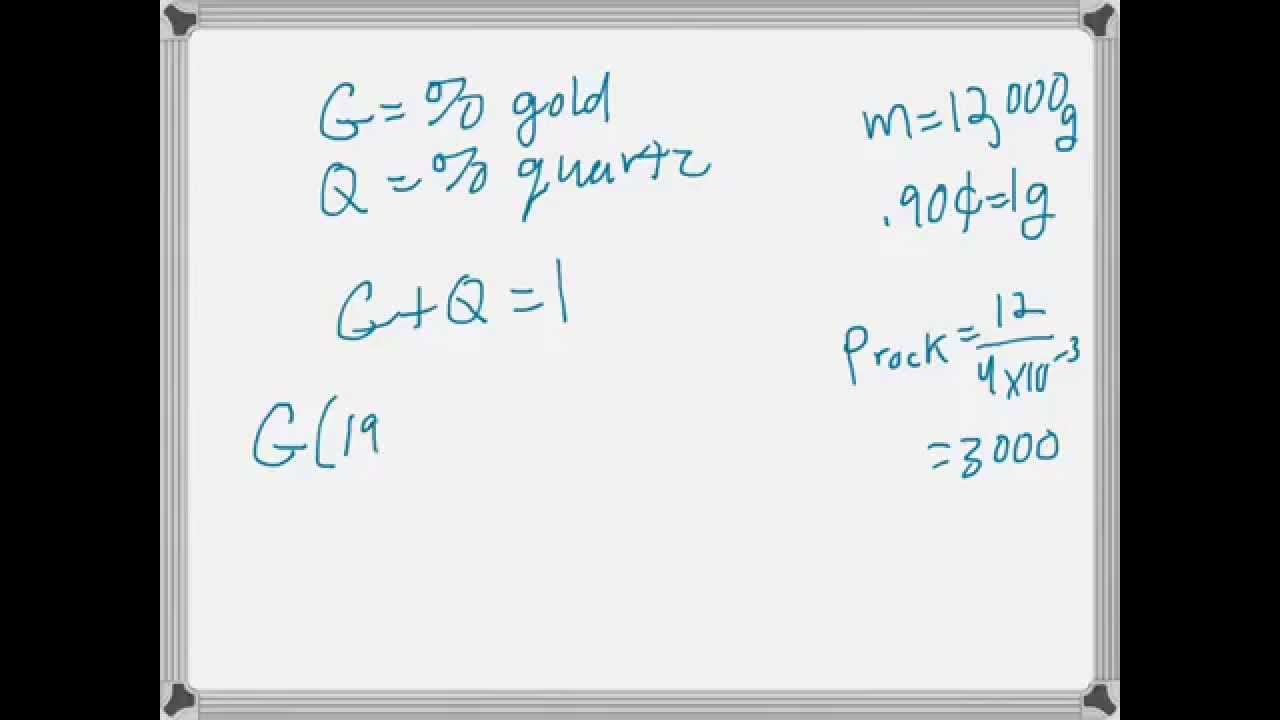 G = % gold
Q = % quartz
G + Q = 1
G(19
m = 12,000g
.90¢ = 1g
ρrock = 12 / 4×10^-3
= 3000